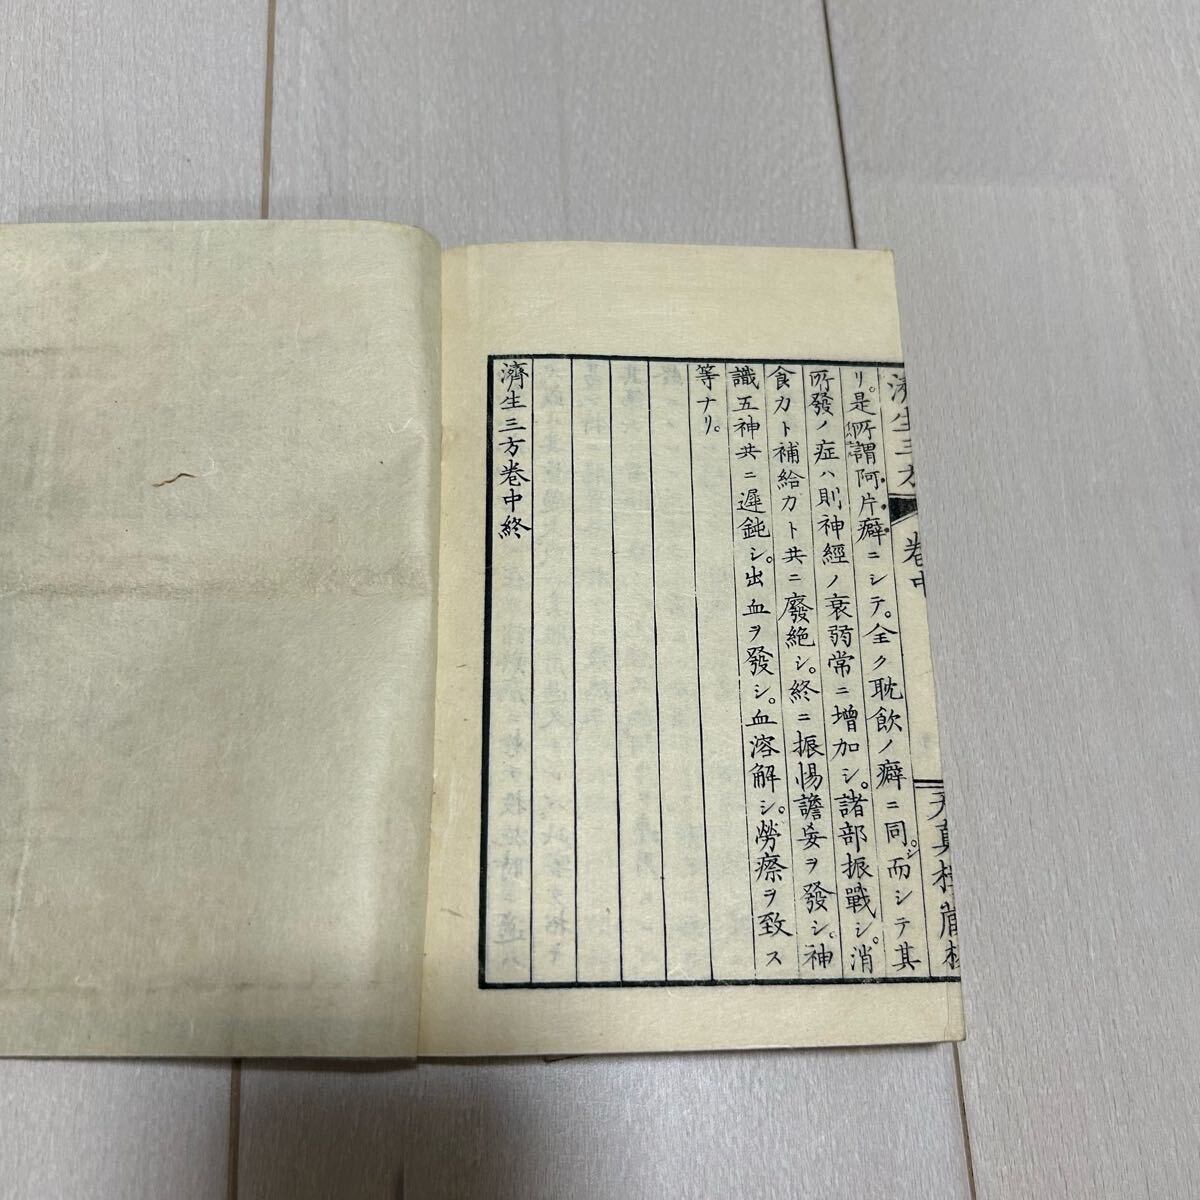 濟生三方
卷中
天真樓藏板
リ。是所謂阿片癖ニシテ。全ク耽飲ノ癖ニ同シ。而シテ其
所發ノ症ハ則神經ノ衰弱常ニ增加シ。諸部振戰シ。消
食力ト補給力ト共ニ廢絶シ。終ニ振惕譫妄ヲ發シ。神
識五神共ニ遲鈍シ。出血ヲ發シ。血溶解シ。勞瘵ヲ致ス
等ナリ。
濟生三方卷中終